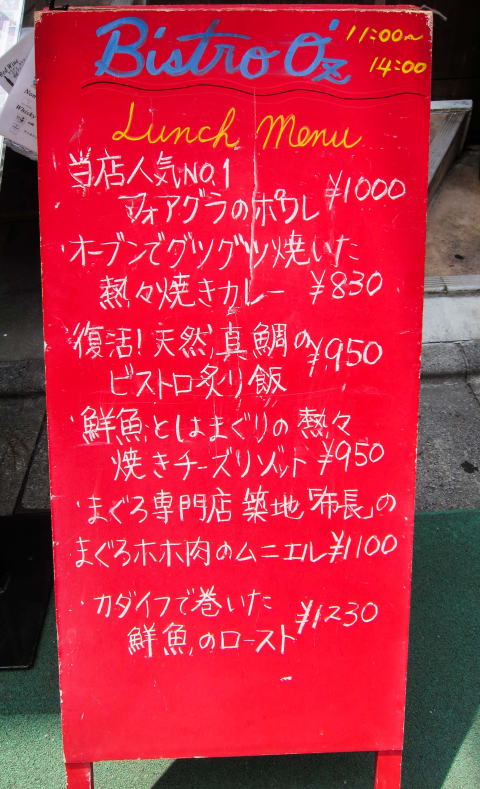 Bistro O'z
11:00~
14:00
Lunch Menu
当店人気NO.1
フォアグラのポワレ ¥1000
・オーブンでグツグツ焼いた
熱々焼きカレー ¥830
・復活!天然真鯛の
ビストロ炙り飯 ¥950
・鮮魚とはまぐりの熱々
焼きチーズリゾット ¥950
・まぐろ専門店 築地「布長」の
まぐろホホ肉のムニエル ¥1100
・カダイフで巻いた
鮮魚のロースト ¥1230
Red Wine
Whisky